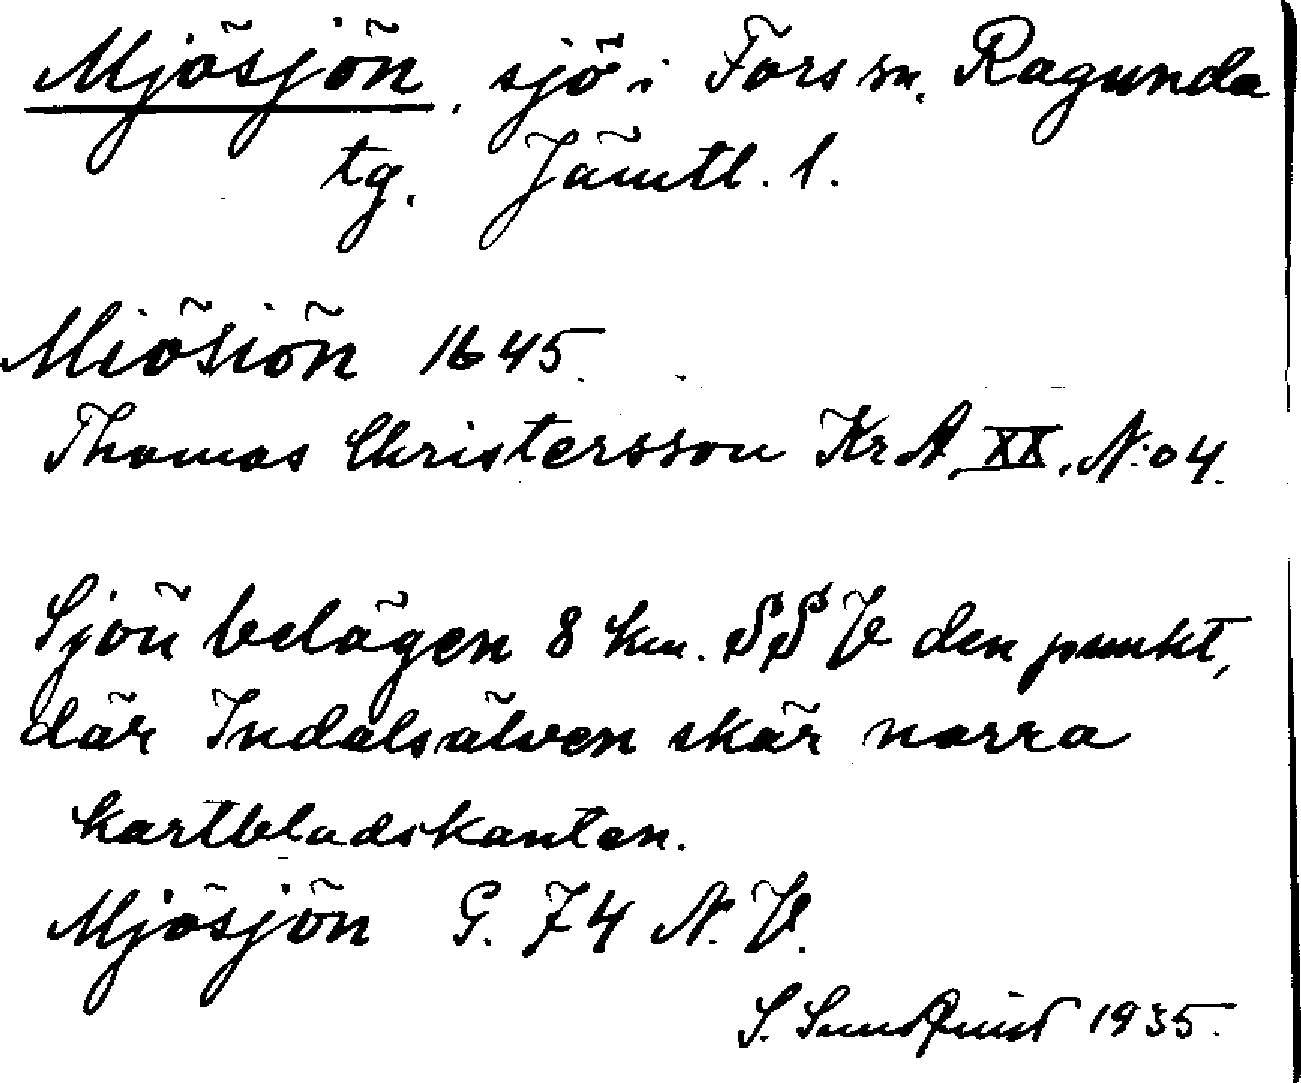 Mjösjön, sjö i Fors sn. Ragunda
tg. Jämtl. l.
Miösiön 1645.
Thomas Christersson Kr A XX. N:o 4.
Sjön belägen 8 km. SSV den punkt,
där Indalsälven skär norra
kartbladskanten.
Mjösjön G. 74 N. V.
S. Sundqvist 1935.